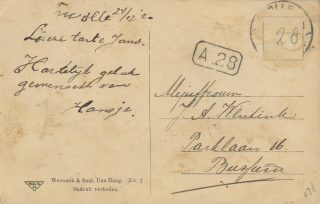 Zwolle 24/12 '20
Lieve tante Jans.
Hartelijk geluk
gewenscht van
Hansje.
A.28
28
Mejuffrouw
A. Wentink
Parklaan 16
Bussum
Weenenk & Snel, Den Haag. Zw. 2
Nadruk verboden.